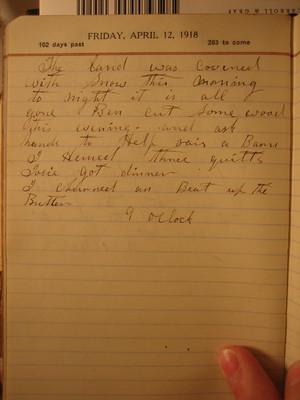 CARROLL & GRAY
FRIDAY, APRIL 12, 1918
102 days past 263 to come
The land was covered
with snow this morning
to night it is all
gone Ben cut some wood
this evening and ask
hands to Help rais a Barn
I Hemed three quilts
Josie got dinner
I churned an Beat up the
Butter
9 oclock